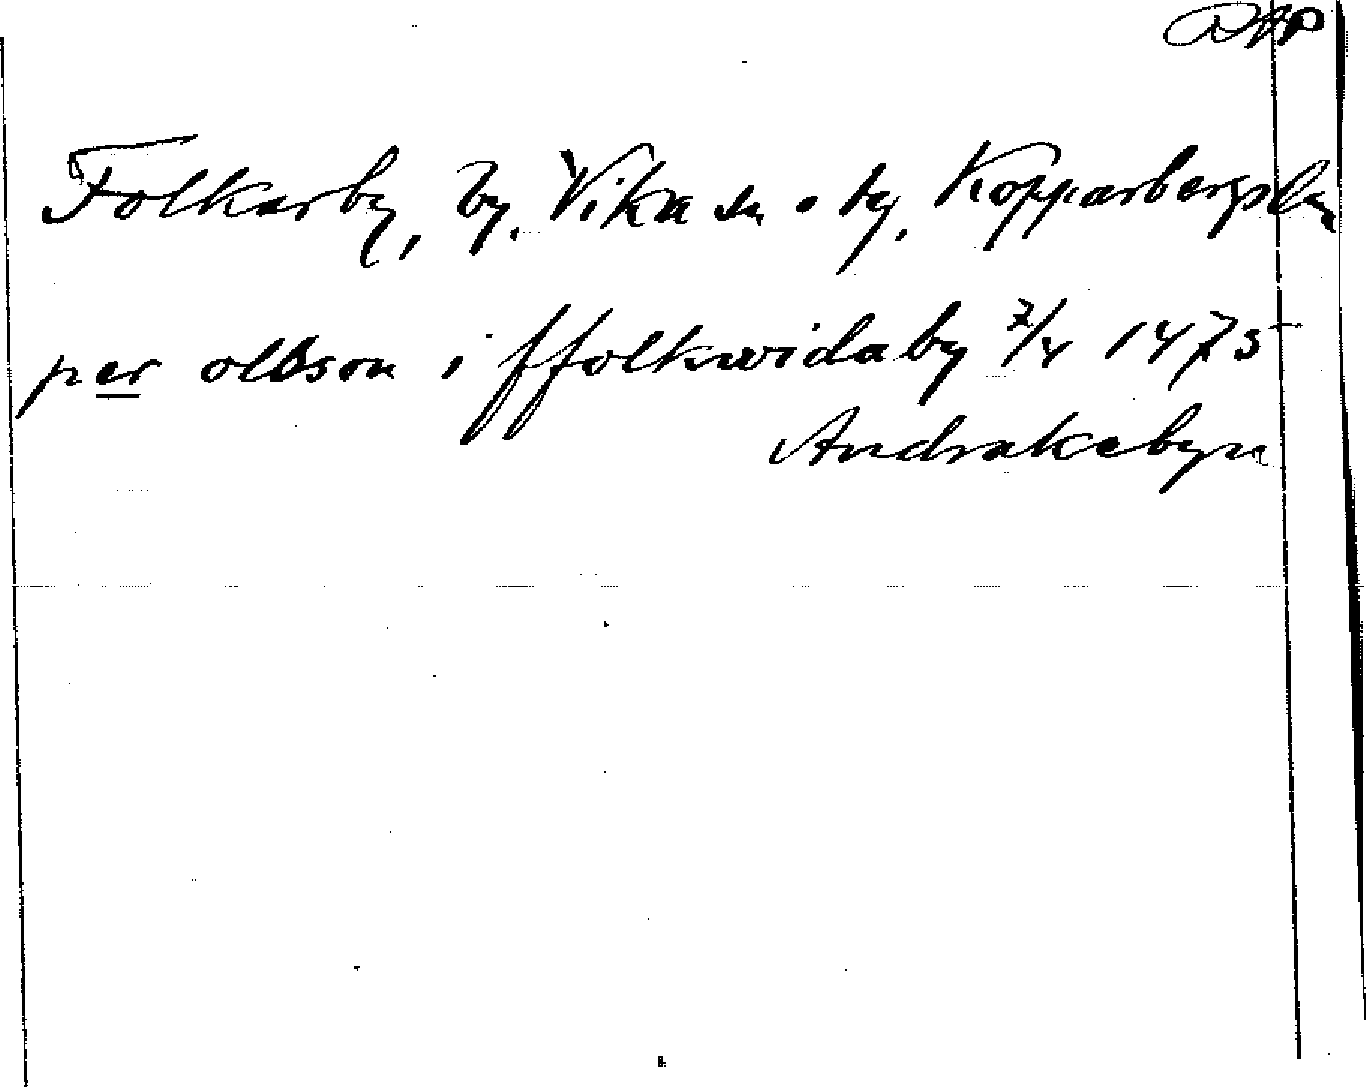 DAP
Folkarby, by. Vika sn o. tg. Kopparbergs län
per olsson i ffolkwidaby 7/4 1475
Andrakebyn